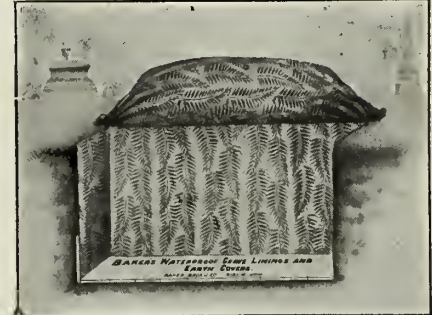 BAKERS WATERPROOF GRAVE LININGS AND
EARTH COVERS.
BAKER BROS &